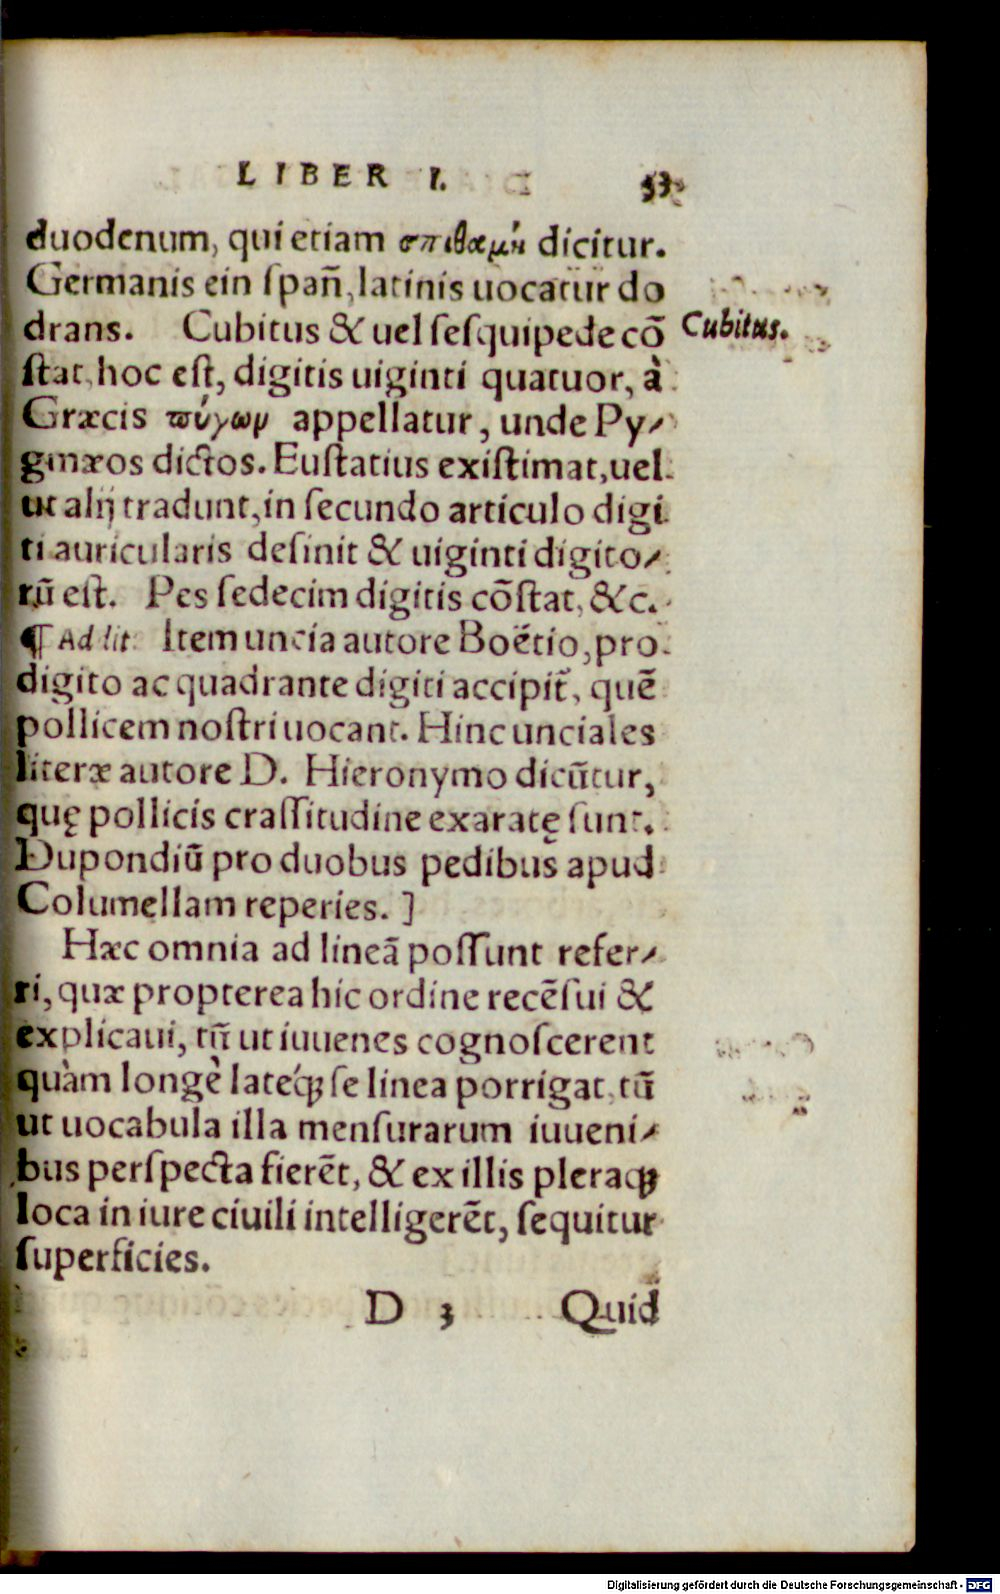 LIBER I. 53
duodenum, qui etiam σπιθαμὴ dicitur.
Germanis ein ſpañ, latinis uocatur do
drans. Cubitus & uel ſeſquipede cõ
Cubitus.
ſtat, hoc eſt, digitis uiginti quatuor, à
Græcis πύγωμ appellatur, unde Py-
gmæos dictos. Euſtatius exiſtimat, uel
ut alij tradunt, in ſecundo articulo digi
ti auricularis deſinit & uiginti digito-
rũ eſt. Pes ſedecim digitis cõſtat, &c.
¶ Ad lit. Item uncia autore Boëtio, pro
digito ac quadrante digiti accipit̃, quẽ
pollicem noſtri uocant. Hinc unciales
literæ autore D. Hieronymo dicũtur,
quę pollicis craſſitudine exaratę ſunt.
Dupondiũ pro duobus pedibus apud
Columellam reperies. ]
Hæc omnia ad lineã poſſunt refer-
ri, quæ propterea hic ordine recẽſui &
explicaui, tũ ut iuuenes cognoſcerent
quàm longè lateq́ꝫ ſe linea porrigat, tũ
ut uocabula illa menſurarum iuueni-
bus perſpecta fierẽt, & ex illis pleraqꝫ
loca in iure ciuili intelligerẽt, ſequitur
ſuperficies.
D 3 Quid
Digitalisierung gefördert durch die Deutsche Forschungsgemeinschaft - DFG